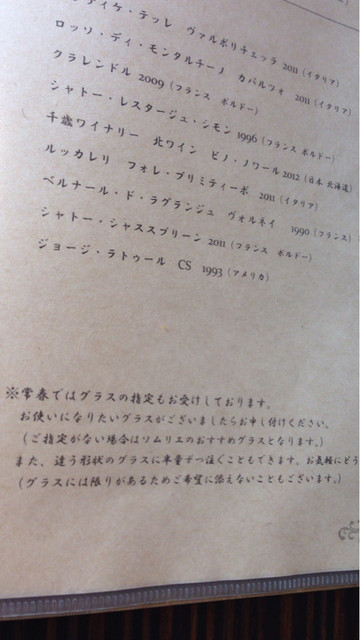 ディケ・テッレ ヴァルポリチェッラ 2011 (イタリア)
ロッソ・ディ・モンタルチーノ カパルツォ 2011 (イタリア)
クラレンドル 2009 (フランス ボルドー)
シャトー・レスタージュ・シモン 1996 (フランス ボルドー)
千歳ワイナリー 北ワイン ピノ・ノワール 2012 (日本 北海道)
ルッカレリ フォレ・プリミティーボ 2011 (イタリア)
ベルナール・ド・ラグランジュ ヴォルネイ 1990 (フランス)
シャトー・シャススプリーン 2011 (フランス ボルドー)
ジョージ・ラトゥール CS 1993 (アメリカ)
※常春ではグラスの指定もお受けしております。
お使いになりたいグラスがございましたらお申し付けください。
(ご指定がない場合はソムリエのおすすめグラスとなります。)
また、違う形状のグラスに半量ずつ注ぐこともできます。お気軽にどう
(グラスには限りがあるためご希望に添えないこともございます。)